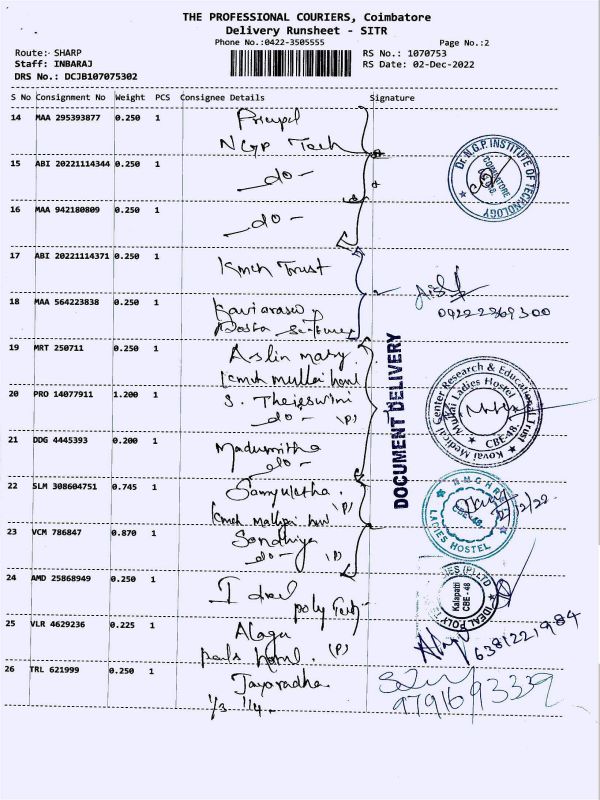 THE PROFESSIONAL COURIERS, Coimbatore
Delivery Runsheet - SITR
Phone No.:0422-3505555 Page No.:2
Route:- SHARP RS No.: 1070753
Staff: INBARAJ RS Date: 02-Dec-2022
DRS No.: DCJB107075302
S No Consignment No Weight PCS Consignee Details Signature
14 MAA 295393877 0.250 1 Principal
NGP Tech
15 ABI 20221114344 0.250 1 -do-
16 MAA 942180809 0.250 1 -do-
17 ABI 20221114371 0.250 1 Kmch Trust
18 MAA 564223838 0.250 1 Kaviarasu
19 MRT 250711 0.250 1 Aslin mary
kmch mullai
20 PRO 14077911 1.200 1 S. Thejeswini
-do- (P)
21 DDG 4445393 0.200 1 Madumitha
-do-
22 SLM 308604751 0.745 1 Samyuktha. (P)
kmch
23 VCM 786847 0.870 1 Sondhiya
-do- (P)
24 AMD 25868949 0.250 1 Ideal
poly Tech
25 VLR 4629236 0.225 1 Alagu
(P)
26 TRL 621999 0.250 1 Jayaradha
Dr. N.G.P. INSTITUTE OF TECHNOLOGY
COIMBATORE
DOCUMENT DELIVERY
Kovai Medical Center Research & Educational Trust
Mullai Ladies Hostel
CBE-48.
LADIES HOSTEL
CBE-48
IDEAL POLY
(P) LTD
Kalapatti
CBE - 48
6381221984
9791693339